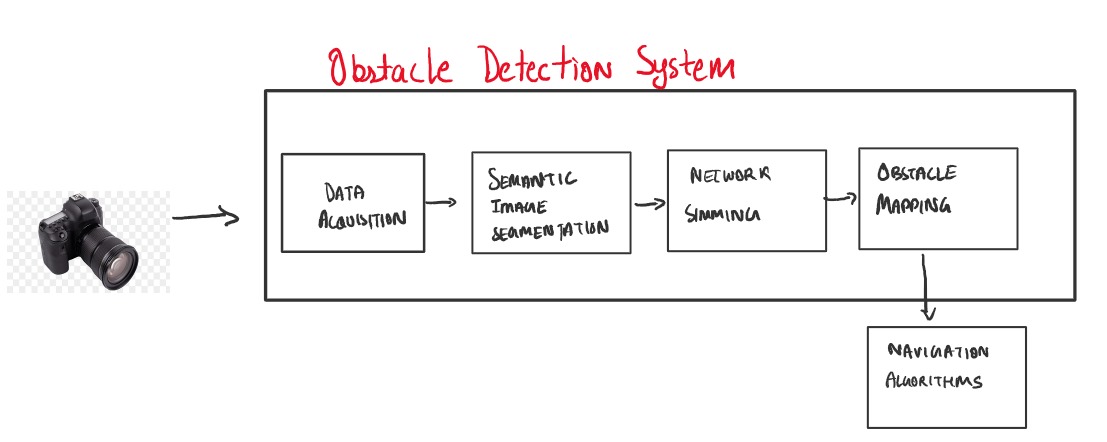 Obstacle Detection System
DATA
ACQUISITION
SEMANTIC
IMAGE
SEGMENTATION
NETWORK
SIMMING
OBSTACLE
MAPPING
NAVIGATION
ALGORITHMS